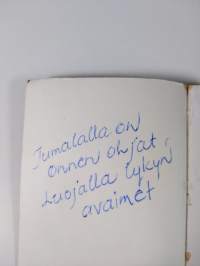 Jumalalla on
onnen ohjat,
Luojalla lykyn
avaimet